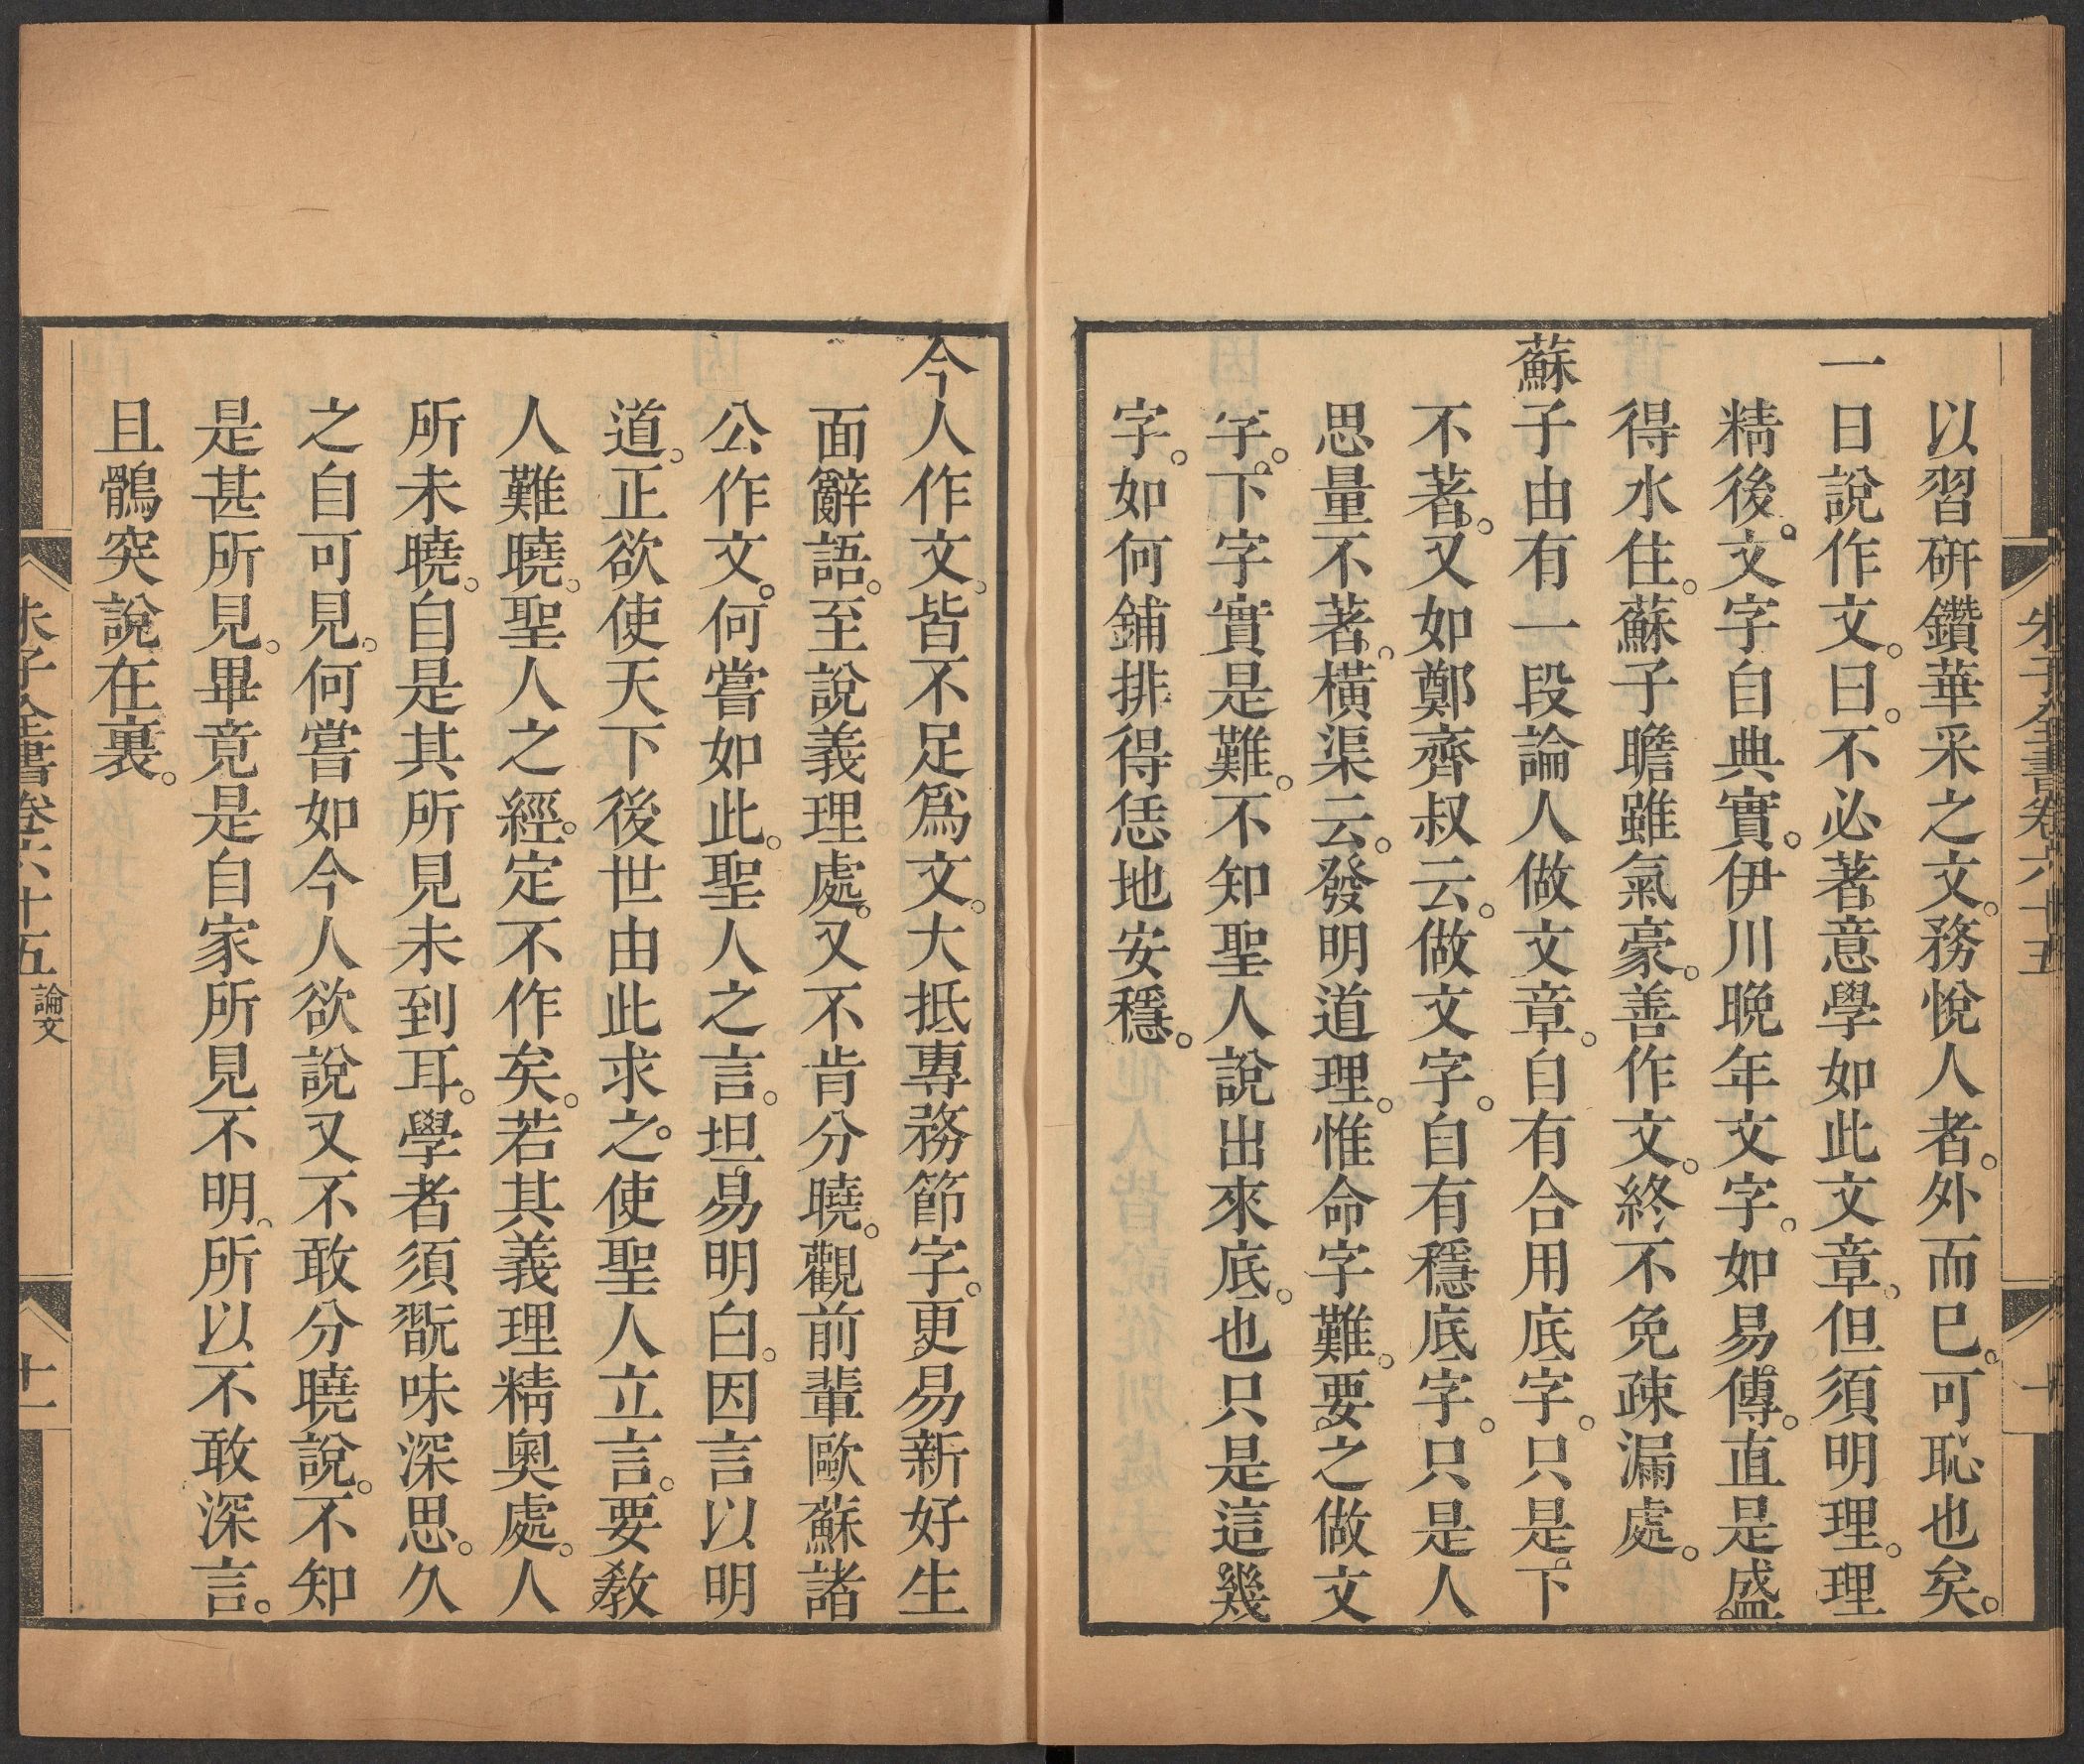 朱子全書卷六十五
十
以習研鑽華采之文。務悅人者。外而已。可恥也矣。
一日說作文。曰。不必著意學如此文章。但須明理。理
精後。文字自典實。伊川晚年文字。如易傳。直是盛
得水住。蘇子瞻雖氣豪。善作文。終不免疎漏處。
蘇子由有一段論人做文章。自有合用底字。只是下
不著。又如鄭齊叔云。做文字。自有穩底字。只是人
思量不著。橫渠云。發明道理。惟命字難。要之做文
字。下字實是難。不知聖人說出來底。也只是這幾
字。如何鋪排得恁地安穩。
今人作文。皆不足爲文。大抵專務節字。更易新好生
面辭語。至說義理處。又不肯分曉。觀前輩歐蘇諸
公作文。何嘗如此。聖人之言。坦易明白。因言以明
道。正欲使天下後世由此求之。使聖人立言。要敎
人難曉。聖人之經。定不作矣。若其義理精奧處。人
所未曉。自是其所見未到耳。學者須翫味深思。久
之自可見。何嘗如今人欲說又不敢分曉說。不知
是甚所見。畢竟是自家所見不明。所以不敢深言。
且鶻突說在裏。
朱子全書卷六十五 論文
十一